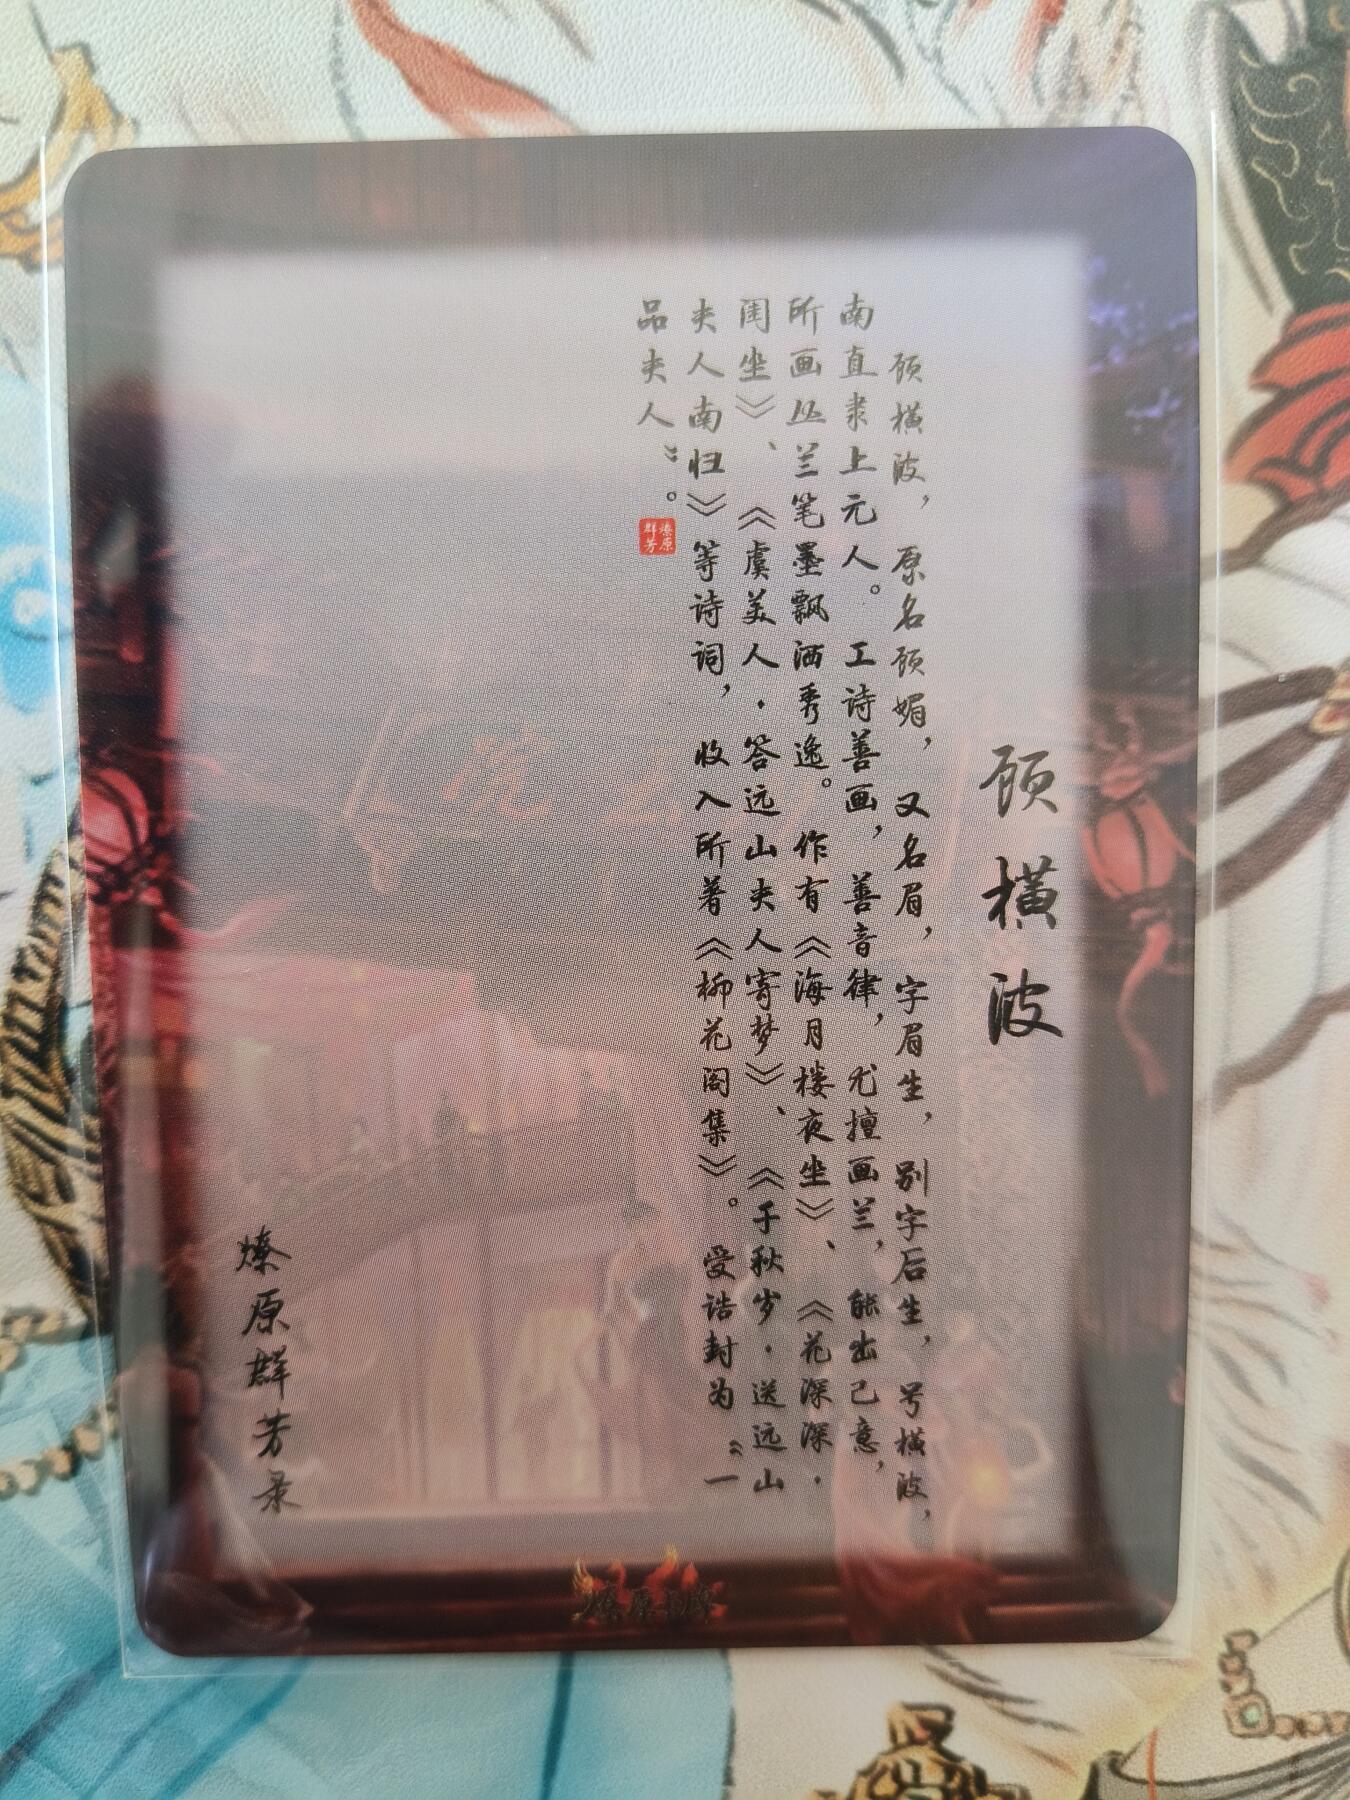 顾横波
顾横波，原名顾媚，又名眉，字眉生，别字后生，号横波，
南直隶上元人。工诗善画，善音律，尤擅画兰，能出己意，
所画丛兰笔墨飘洒秀逸。作有《海月楼夜坐》、《花深深·
闺坐》、《虞美人·答远山夫人寄梦》、《千秋岁·送远山
夫人南归》等诗词，收入所著《柳花阁集》。受诰封为“一
品夫人”。
燎原群芳
燎原群芳录